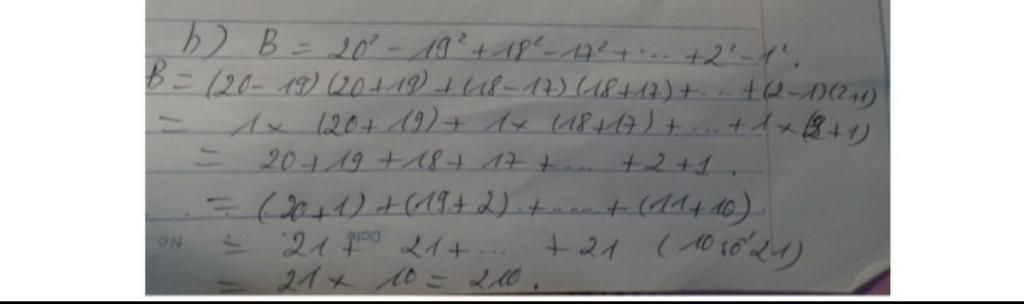 b) B = 20² - 19² + 18² - 17² + ... + 2² - 1².
B = (20 - 19)(20 + 19) + (18 - 17)(18 + 17) + ... + (2 - 1)(2 + 1)
= 1 × (20 + 19) + 1 × (18 + 17) + ... + 1 × (2 + 1)
= 20 + 19 + 18 + 17 + ... + 2 + 1.
= (20 + 1) + (19 + 2) + ... + (11 + 10).
= 21 + 21 + ... + 21 (10 số 21)
= 21 × 10 = 210.
No
Date